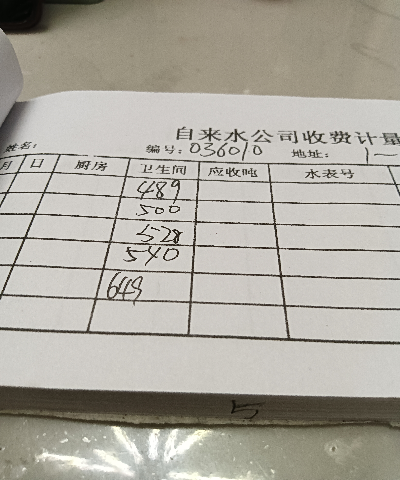 自来水公司收费计量
姓名: 编号: 036010 地址: 1一
月 日 厨房 卫生间 应收吨 水表号
489
500
528
540
649
5